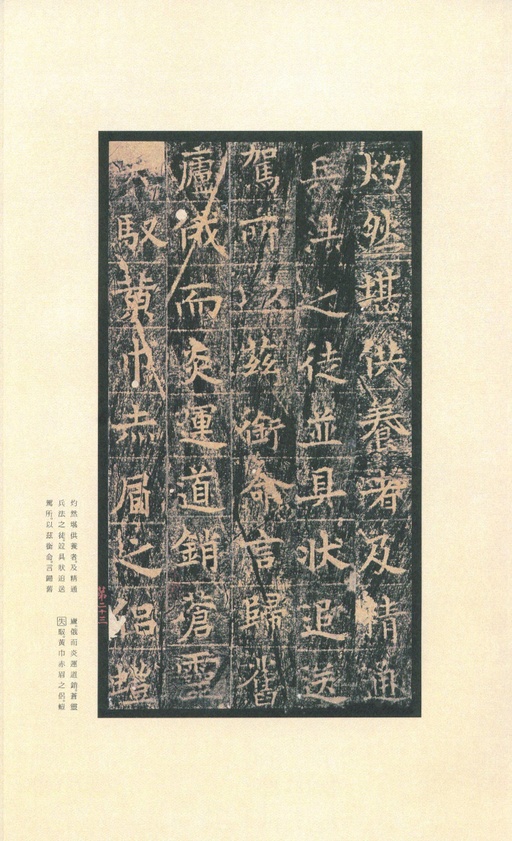 灼然堪供養者及精通
兵法之徒並具狀追送
駕所以茲銜命言歸舊
廬俄而炎運道銷蒼靈
失馭黃巾赤眉之侶
灼然堪供養者及精通
兵法之徒並具狀追送
駕所以茲銜命言歸舊
廬俄而炎運道銷蒼靈
失馭黃巾赤眉之侶
第二十三